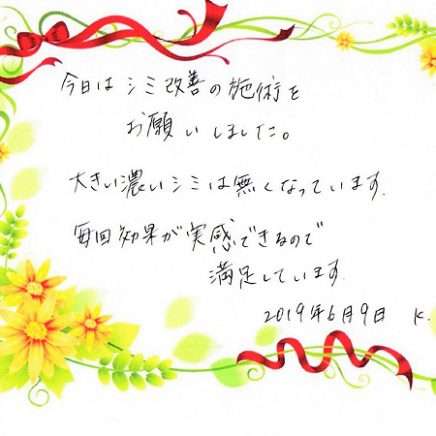 今日はシミ改善の施術を
お願いしました。
大きい濃いシミは無くなっています.
毎回効果が実感できるので
満足しています.
2019年6月9日 K.